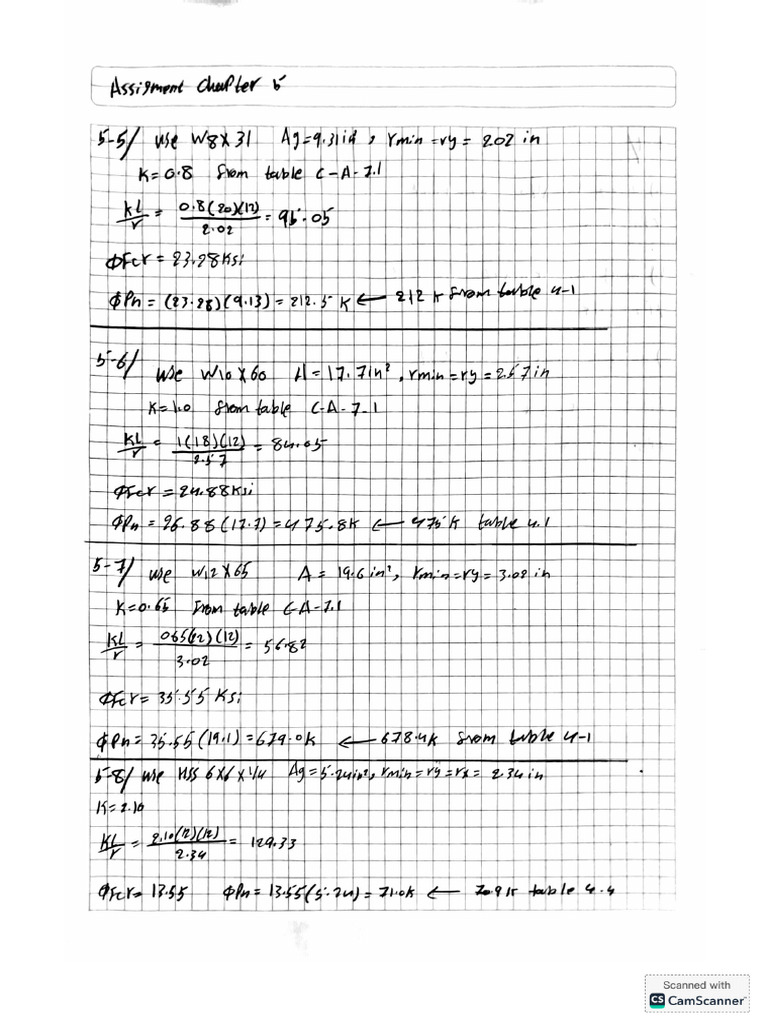 Assigment Chapter 5
5-5/ use W8X31 Ag=9.31in², rmin=ry= 2.02 in
K=0.8 from table C-A-7.1
KL/r = 0.8(20)(12)/2.02 = 95.05
ϕFcr = 23.28Ksi
ϕPn = (23.28)(9.13) = 212.5 K ← 212 K from table 4-1
5-6/ use W10X60 A=17.7in², rmin=ry=2.57in
K=1.0 from table C-A-7-1
KL/r = 1(18)(12)/2.57 = 84.05
ϕFcr = 24.88Ksi
ϕPn = 26.88(17.7) = 475.8K ← 475K table 4.1
5-7/ use W12X65 A = 19.6in², rmin=ry=3.02 in
K=0.65 from table C-A-7.1
KL/r = 065(22)(12)/3.02 = 56.82
ϕFcr = 35.55 Ksi
ϕPn = 35.55(19.1) = 679.0K ← 678.4K from table 4-1
5-8/ use HSS 6X6X1/4 Ag=5.24in², rmin=ry=rx= 2.34in
K=2.10
KL/r = 2.10(12)(12)/2.34 = 129.33
ϕFcr= 13.55 ϕPn = 13.55(5.24) = 71.0K ← 70.9K table 4.4
Scanned with
CS CamScanner